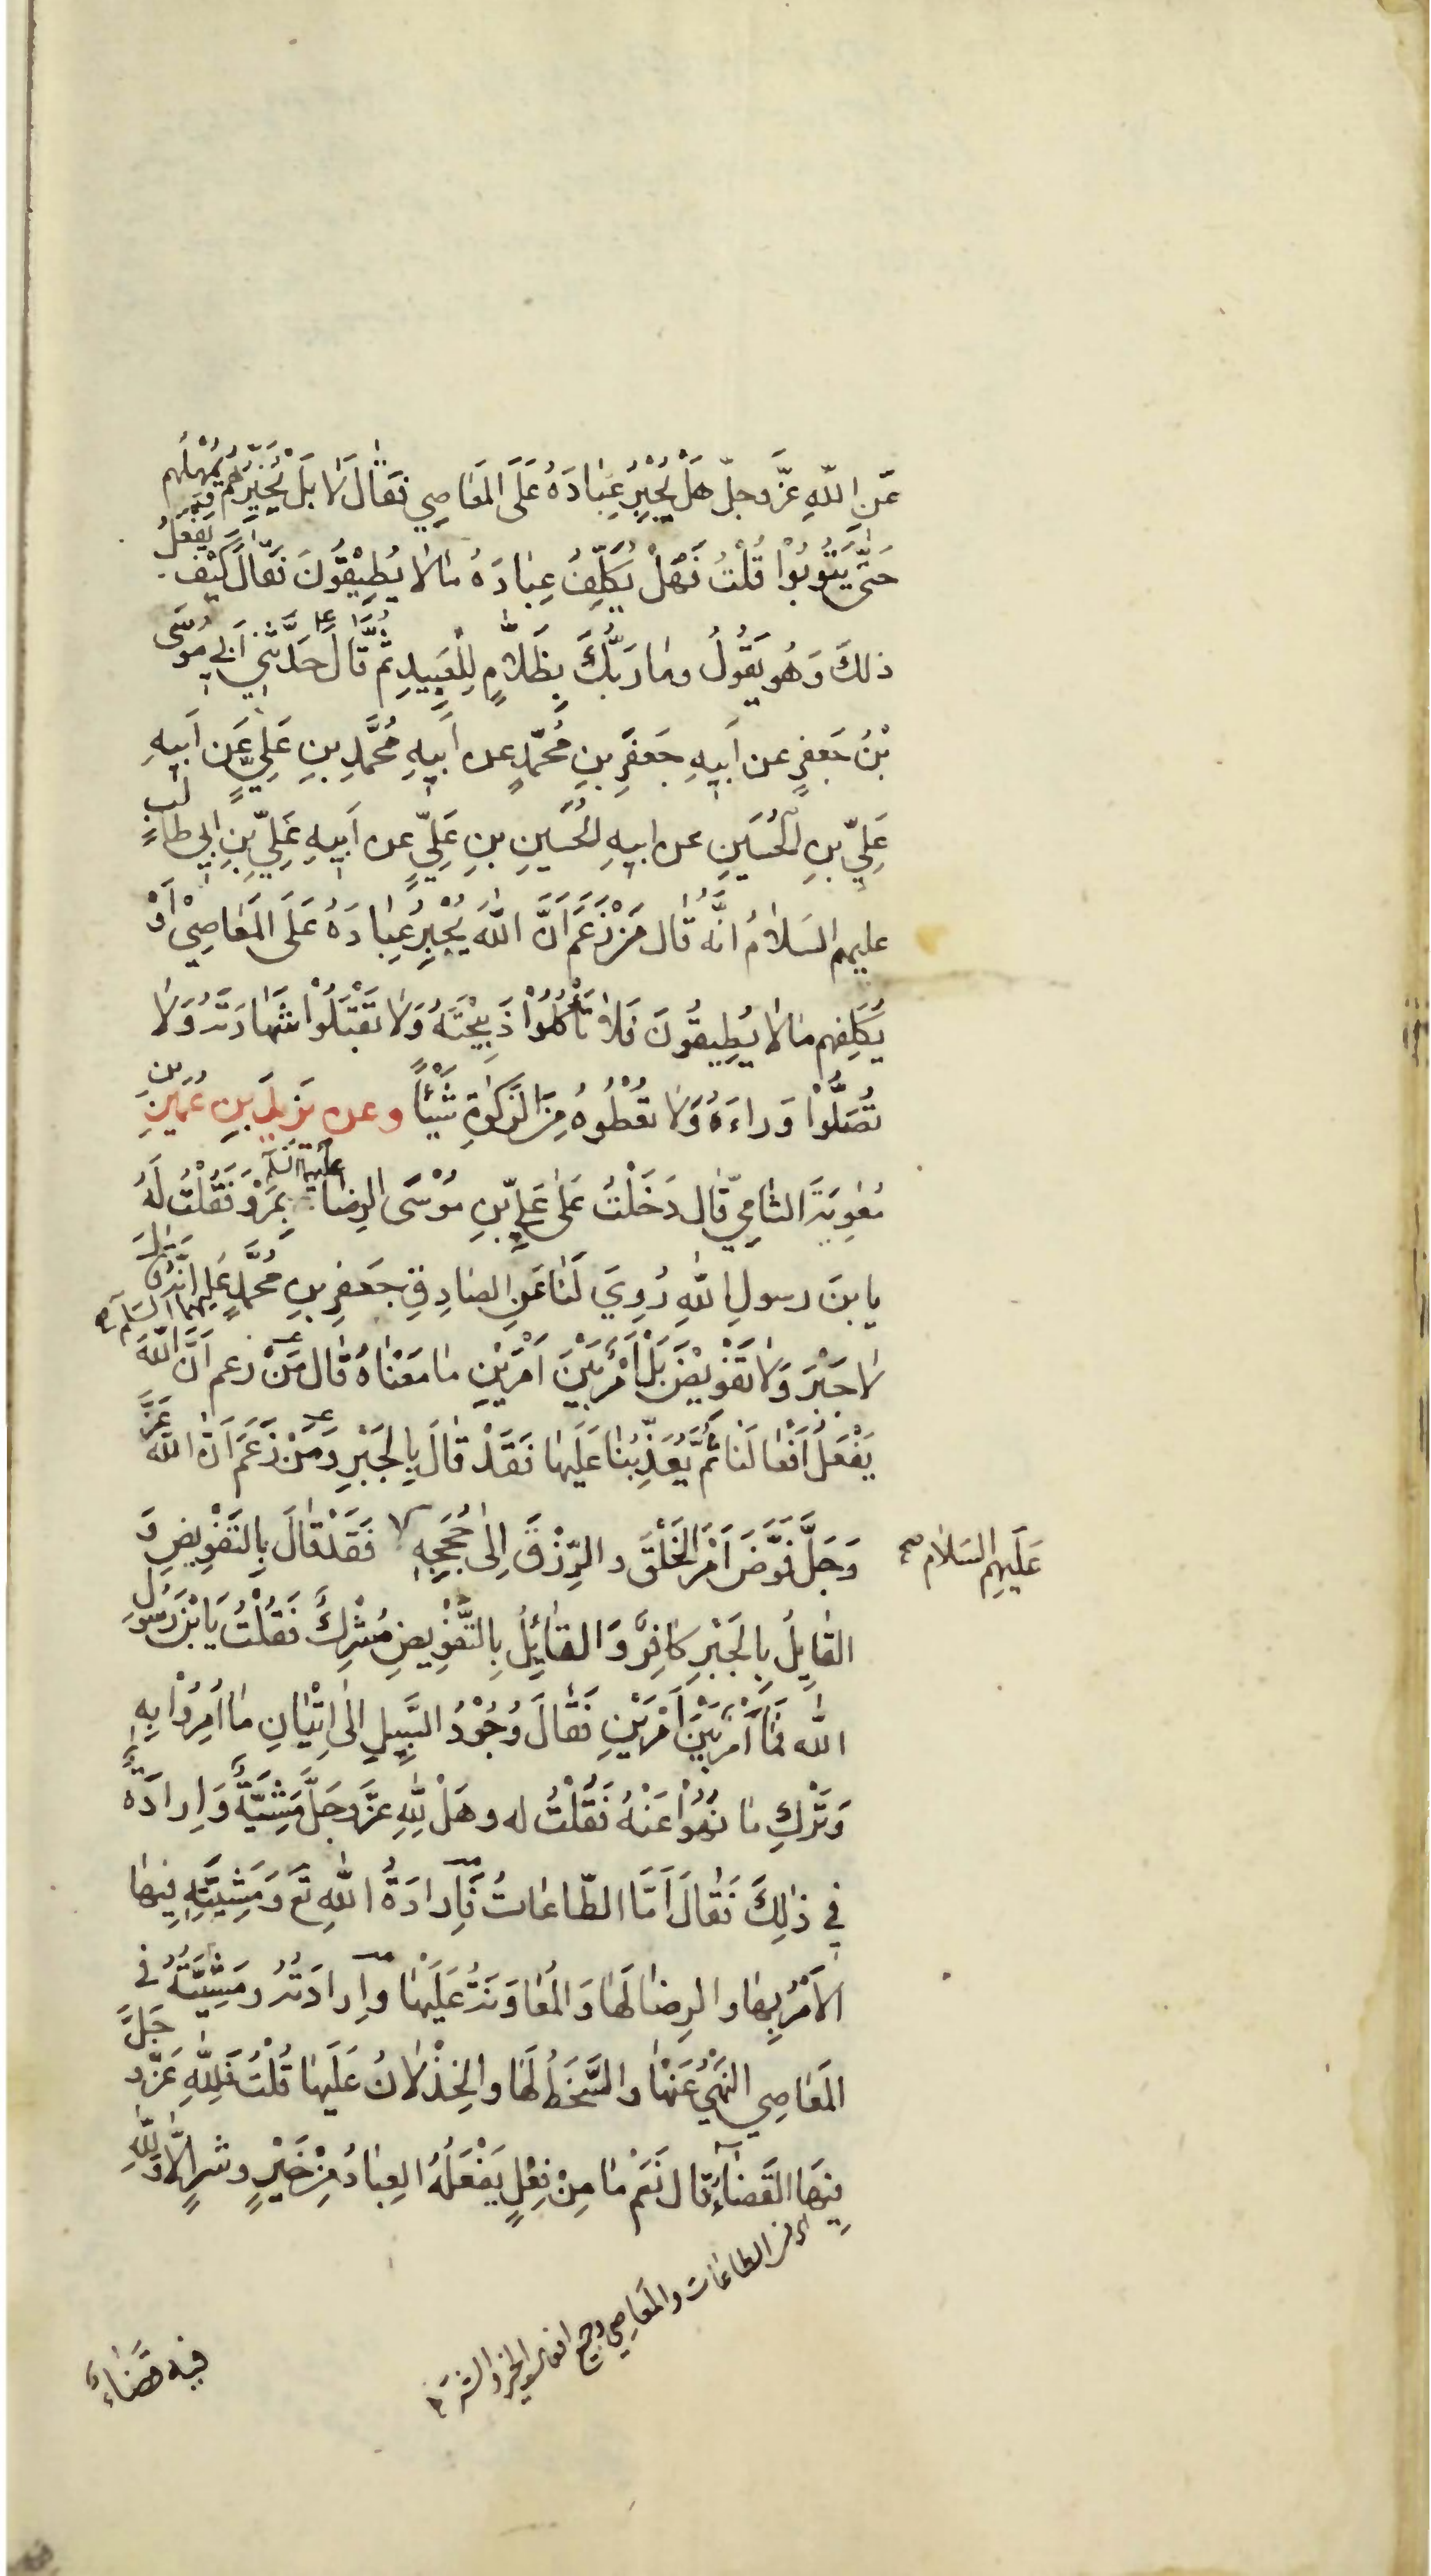 عَنِ اللّٰهِ عَزَّ وجلّ هَلْ يُجْبِرُ عِبٰادَهُ عَلَى المَعٰاصِي فَقٰالَ لٰا بَلْ يُخَيِّرُهُمْ وَيُمْهِلُهُم
حَتّٰى يَتُوبُوْا قُلْتُ فَهَلْ يُكَلِّفُ عِبٰادَهُ مٰا لٰا يُطِيْقُونَ فَقٰالَ كَيْفَ يَفْعَلُ
ذلكَ وَهُو يَقُولُ ومٰا رَبُّكَ بِظَلّٰامٍ لِلْعَبِيدِ ثُمَّ قٰالَ حَدَّثَنِي اَبِي مُوسَى
بْنُ جَعفرٍ عن اَبيهِ جَعفَرِ بنِ مُحمّدٍ عن اَبيهِ مُحمَّدِ بنِ عَلِيٍّ عَن اَبيهِ
عَلِيِّ بنِ الحُسَينِ عن ابيهِ الحُسَينِ بنِ عَلِيٍّ عن اَبيهِ عَلِيِّ بنِ ابي طالبٍ
عليهم السَلٰامُ انَّهُ قٰال مَنْ زَعَمَ اَنَّ اللّٰهَ يُجْبِرُ عِبٰادَهُ عَلَى المَعٰاصِيْ اَوْ
يُكَلِّفهم مٰا لٰا يُطِيقُونَ فَلٰا تَأْكُلُوْا ذَبِيْحَتَهُ وَلٰا تَقْبَلُوْا شَهٰادَتَهُ وَلٰا
تُصَلُّوْا وَراءَهُ وَلٰا تُعْطُوهُ مِنَ الزَكٰوةِ شَيْئاً وعن يَزيدَ بنِ عُمَيْرِ بنِ
مُعٰوِيَةَ الشٰامِيِّ قٰال دَخَلْتُ عَلىٰ عَلِيِّ بنِ مُوْسَى الرِضٰا عليه السلم بِمَرْوَ فَقُلْتُ لَهُ
يا بنَ رسولِ اللّٰهِ رُوِيَ لَنٰا عَنِ الصٰادِقِ جَعفرِ بنِ مُحمَّدٍ عَليهما السلم انَّهُ قال
لٰا جَبْرَ وَلٰا تَفْوِيْضَ بَلْ اَمْرٌ بَيْنَ اَمْرَيْنِ مٰا مَعْنٰاهُ قٰال مَنْ زعم اَنَّ اللّٰهَ
يَفْعَلُ اَفْعٰالَنٰا ثُمَّ يُعَذِّبُنٰا عَلَيهٰا فَقَدْ قٰالَ بِالجَبْرِ وَمَنْ زَعَمَ اَنَّ اللّٰهَ عَزَّ
وَجَلَّ فَوَّضَ اَمْرَ الخَلْقِ والرِّزْقِ اِلىٰ حُجَجِهِ فَقَدْ قٰالَ بِالتَفْوِيضِ وَ
عَلَيهِم السَلٰام صح
القٰايِلُ بِالجَبْرِ كٰافِرٌ وَالقٰائِلُ بِالتَّفْوِيضِ مُشْرِكٌ فَقُلْتُ يَا بْنَ رَسُولِ
اللّٰه فَمٰا اَمْرٌ بَيْنَ اَمْرَيْنِ فَقٰالَ وُجُوْدُ السَّبِيلِ اِلىٰ اِتْيٰانِ مٰا اُمِرُوْا بِهِ
وَتَرْكِ مٰا نُهُوْا عَنْهُ فَقُلْتُ له وهَلْ لِلّٰهِ عزَّ وجَلَّ مَشِيَّةٌ وَاِرادَةٌ
في ذٰلِكَ فَقٰالَ اَمَّا الطّاعٰاتُ فَاِرادَةُ اللّٰهِ تَع وَمَشِيَّتِهِ فِيهٰا
الاَمْرُ بِهٰا والرِضٰا لَهٰا وَالمُعٰاوَنَةُ عَلَيْهٰا وَاِرادَتُهُ ومَشِيَّتُهُ في
المَعٰاصِي النَهْيُ عَنْهٰا والسَّخَطُ لَهٰا والخِذْلٰانُ عَلَيهٰا قُلْتُ فَلِلّٰهِ عَزَّ وجَلَّ
فِيهَا القَضٰاءُ قٰال نَعَمْ مٰا مِنْ فِعْلٍ يَفْعَلُهُ العِبٰادُ مِنْ خَيْرٍ وشرٍ اِلّٰا وَلِلّٰهِ
الطاعٰات والمَعٰاصي
فيه قَضٰاءٌ